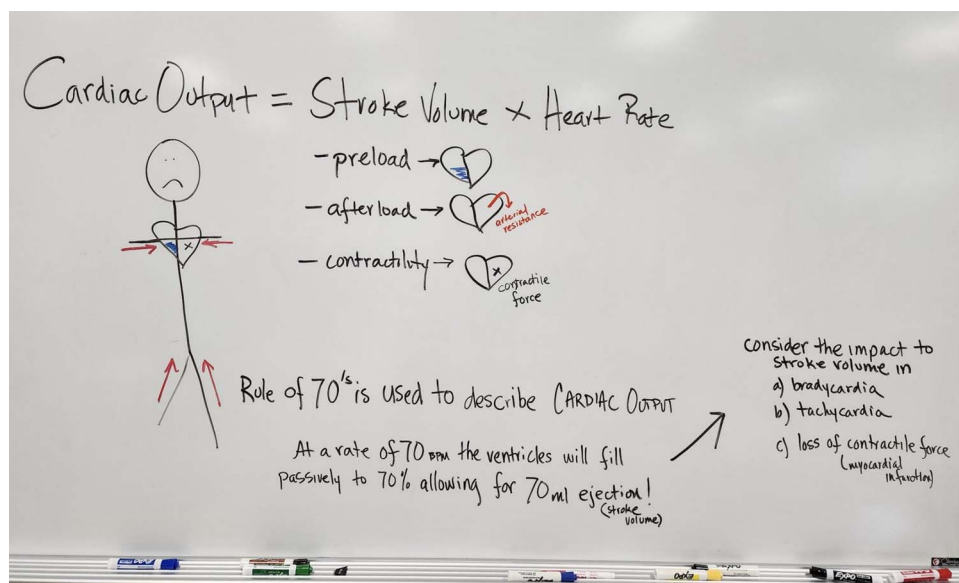 Cardiac Output = Stroke Volume x Heart Rate
- preload →
- afterload →
arterial
resistance
- contractility →
x
contractile
force
x
Rule of 70's is used to describe CARDIAC OUTPUT
At a rate of 70 BPM the ventricles will fill
passively to 70% allowing for 70 ml ejection!
(stroke
volume)
consider the impact to
stroke volume in
a) bradycardia
b) tachycardia
c) loss of contractile force
(myocardial
infarction)
EXPO
EXPO
EXPO